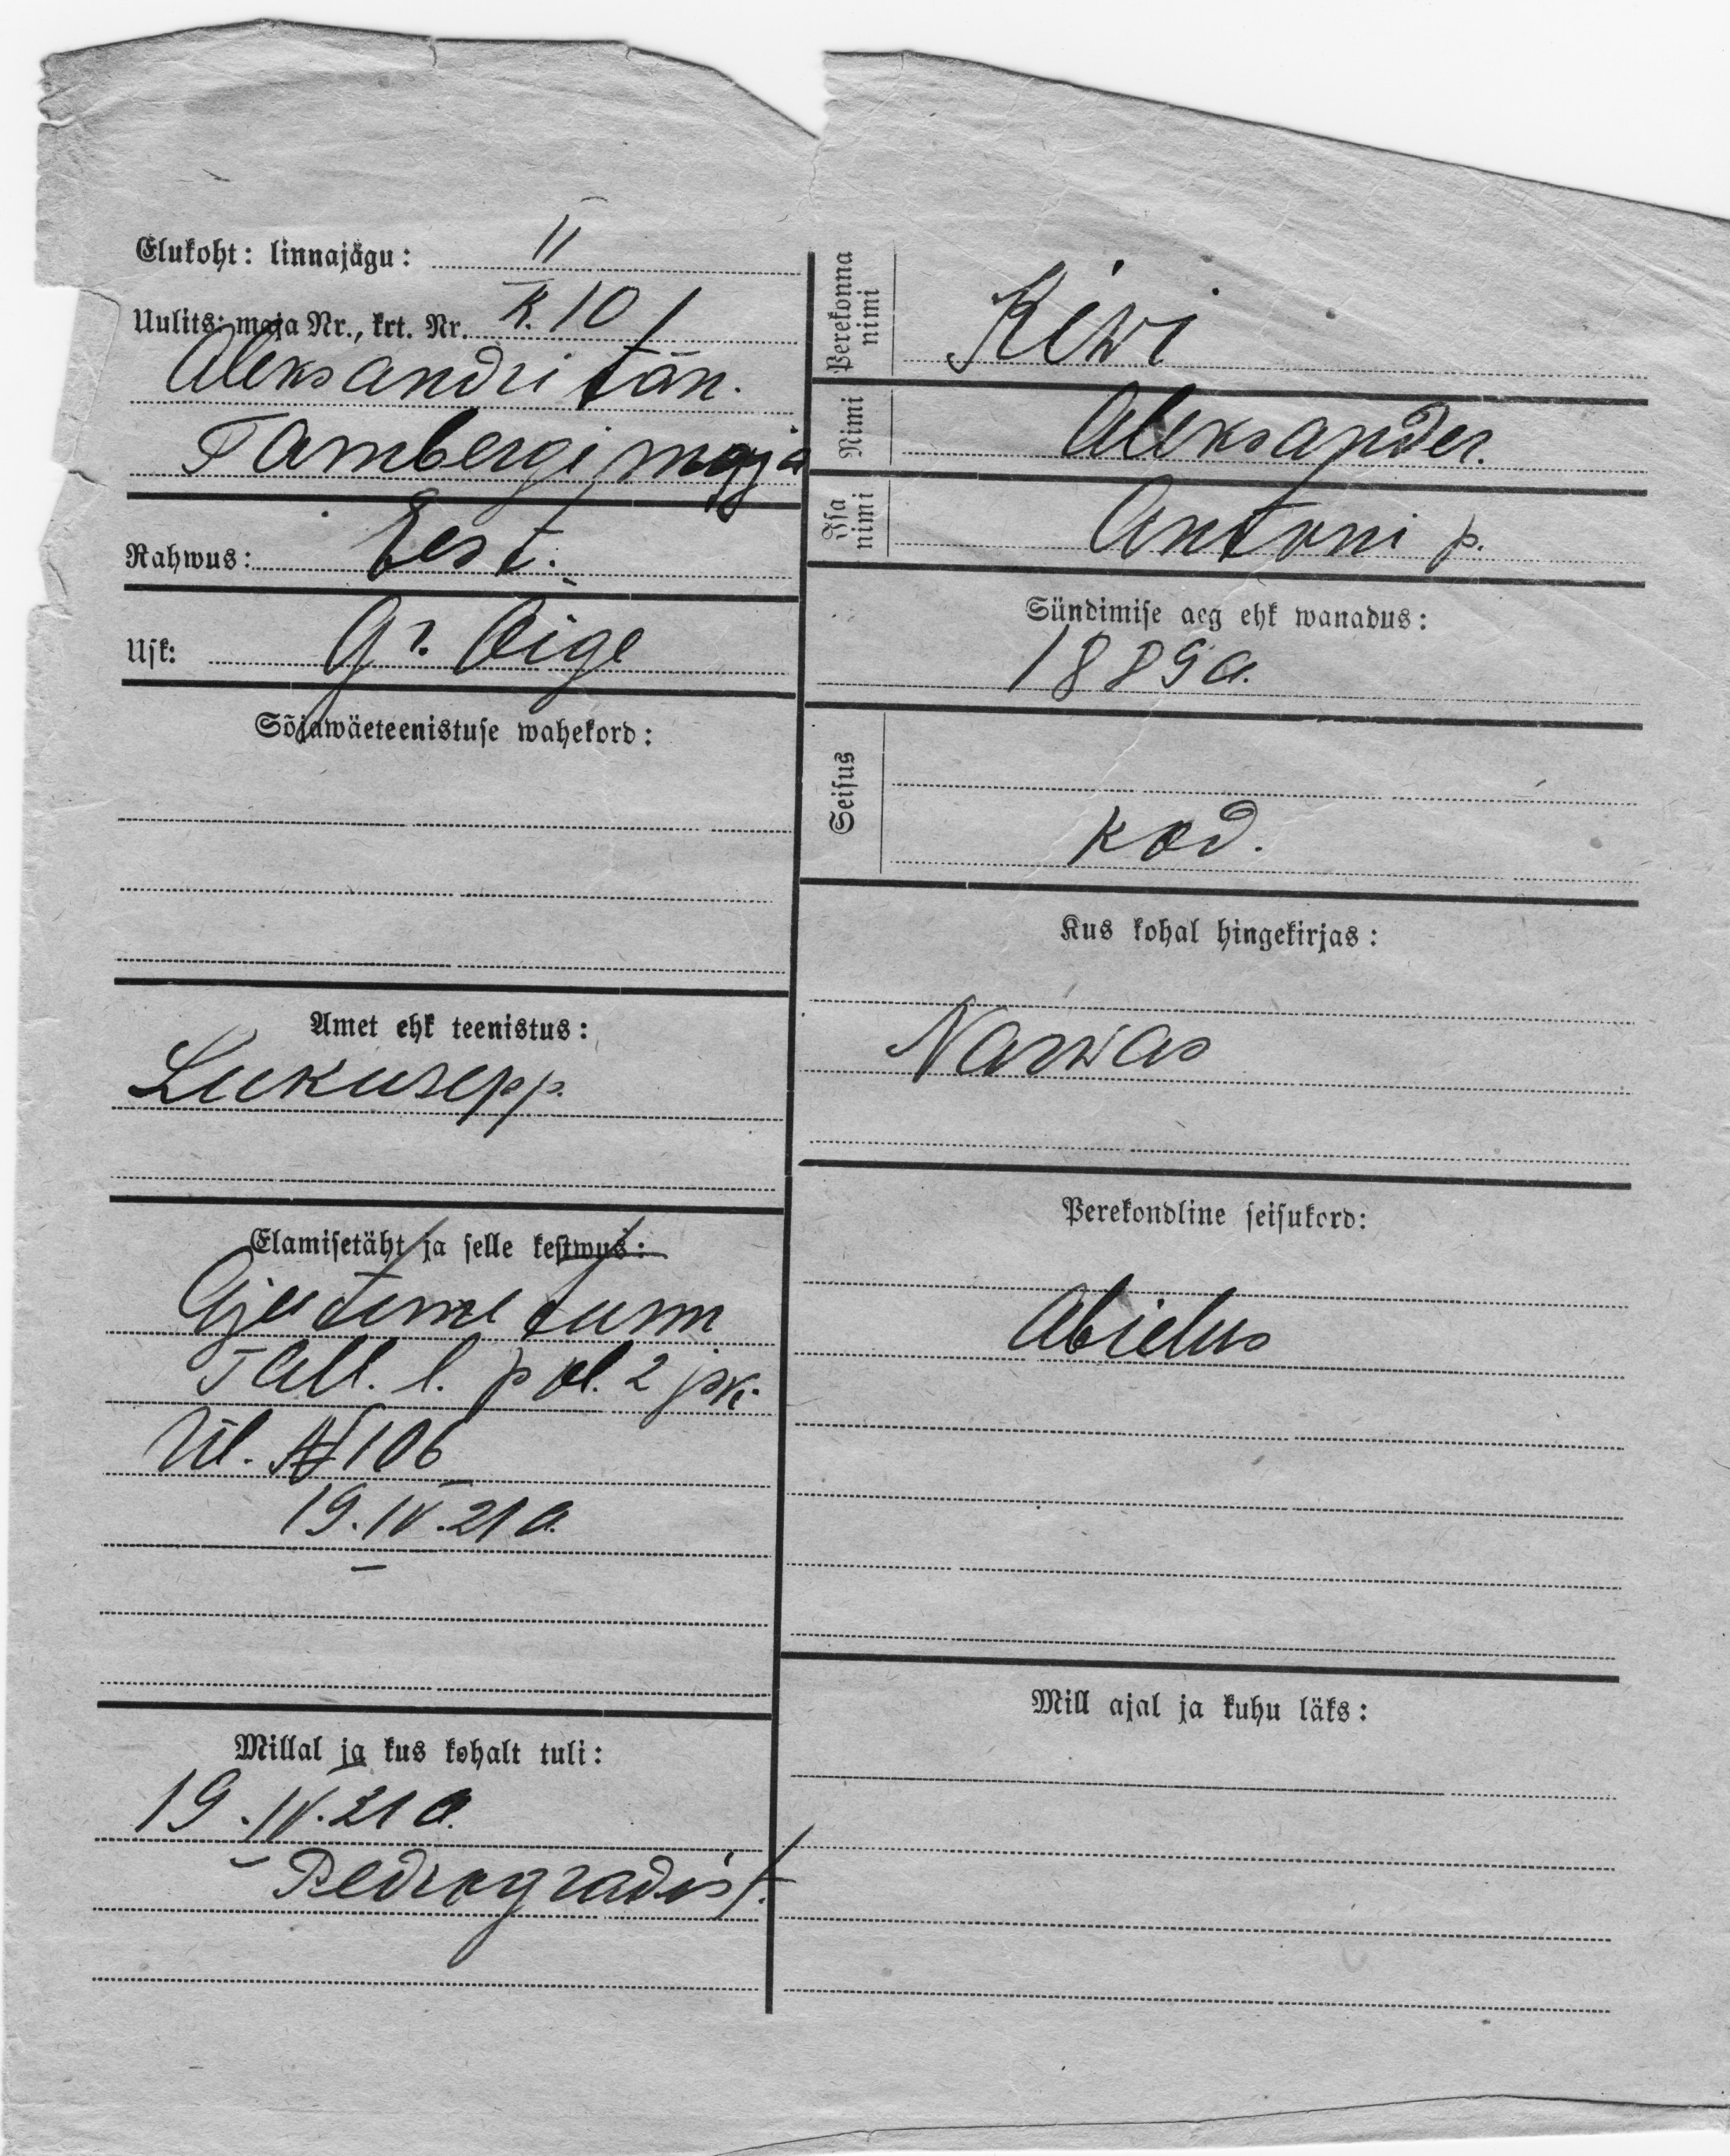 Elukoht: linnajagu: II
Uulits: maja Nr., krt. Nr. K. 10
Aleksandri tän.
Tambergi maja
Rahwus: Eest.
Usk: Gr. Õige
Sõjawäeteenistuse wahekord:
Amet ehk teenistus:
Lukusepp.
Elamisetäht ja selle kestwus:
Ajutine tunn
Tall. l. pol. 2 jsk.
Ül. № 106
19.IV.21 a.
Millal ja kus kohalt tuli:
19.IV.21 a.
Pedrogradist.
Perekonna nimi
Kiwi
Nimi
Aleksander.
Isa nimi
Antoni p.
Sündimise aeg ehk wanadus:
1889 a.
Seisus
kod.
Kus kohal hingekirjas:
Narwas
Perekondline seisukord:
Abielus
Mill ajal ja kuhu läks: